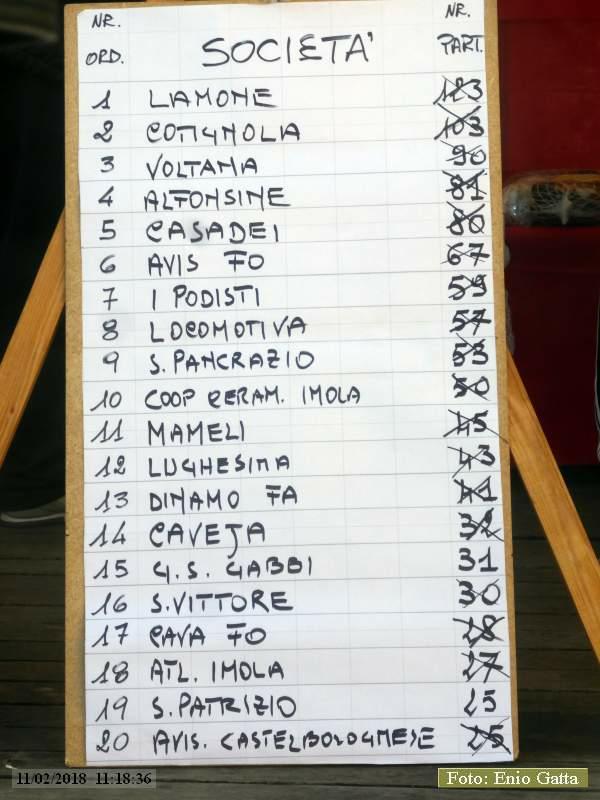 NR. ORD. SOCIETA' NR. PART.
1 LAMONE 123
2 COTIGNOLA 103
3 VOLTANA 90
4 ALFONSINE 81
5 CASADEI 80
6 AVIS FO 67
7 I PODISTI 59
8 LOCOMOTIVA 57
9 S. PANCRAZIO 53
10 COOP CERAM. IMOLA 50
11 MAMELI 45
12 LUGHESINA 43
13 DINAMO FA 41
14 CAVEJA 32
15 G. S. GABBI 31
16 S. VITTORE 30
17 CAVA FO 28
18 ATL. IMOLA 27
19 S. PATRIZIO 25
20 AVIS. CASTELBOLOGNESE 25
11/02/2018 11:18:36
Foto: Enio Gatta